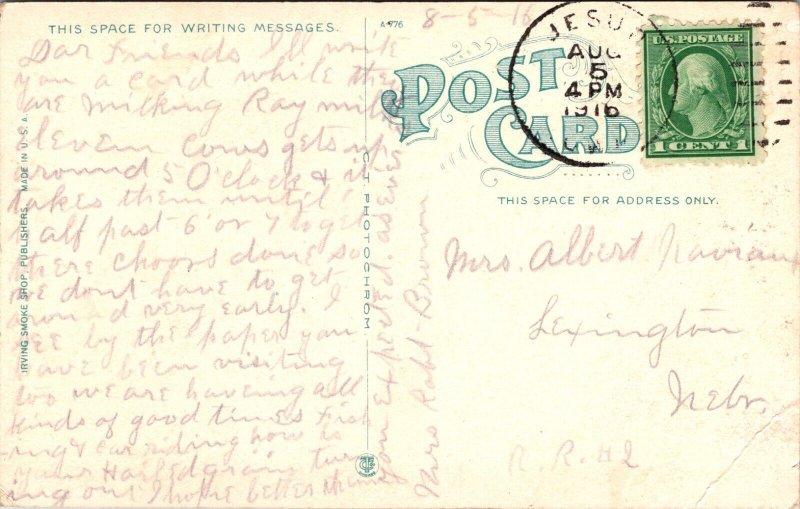 THIS SPACE FOR WRITING MESSAGES.
A-976
8-5-16
Dar Friends I'll write
you a card while the
are milking Ray milks
eleven cows gets up
around 5 O'clock & it
takes them until
half past 6 or 7 to get
there choors done so
we dont have to get
around very early. I
see by the paper you
have been visiting
too we are haveing all
kinds of good times Fish
ing & car riding how is
your Hailed grain turn
ing out I hope better than
you expected. as ever
Mrs Robt Brown
IRVING SMOKE SHOP, PUBLISHERS. MADE IN U.S.A.
C.T. PHOTOCHROM
POST CARD
JESUP
AUG
5
4 PM
1916
U.S. POSTAGE
1 CENT 1
THIS SPACE FOR ADDRESS ONLY.
Mrs. Albert
Lexington
Nebr.
R. R. #2